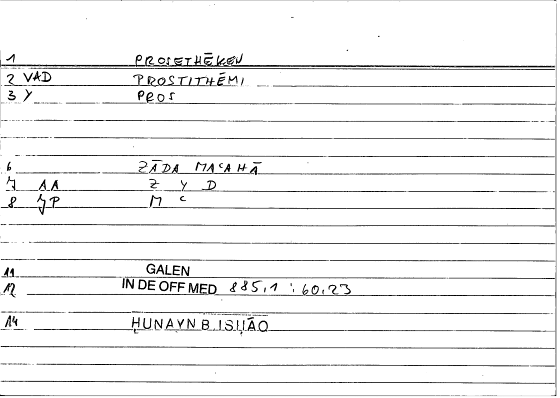 1 PROSETHĒKEN
2 VAD PROSTITHĒMI
3 Y PROS
6 ZĀDA MAᶜAHĀ
7 AA Z Y D
8 P M ᶜ
11 GALEN
12 IN DE OFF MED 885,1 : 60,23
14 ḤUNAYN B. ISḤĀQ